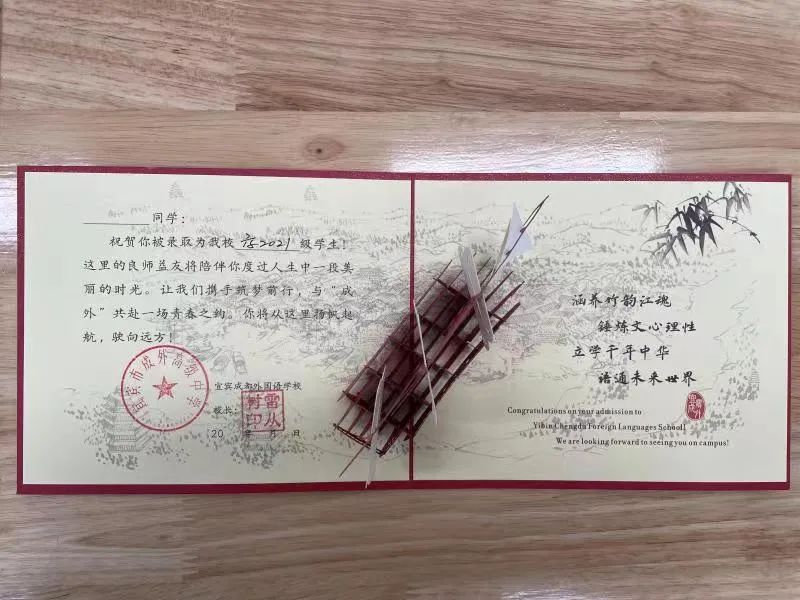 同学:
祝贺你被录取为我校 高2021 级学生!
这里的良师益友将陪伴你度过人生中一段美
丽的时光。让我们携手筑梦前行,与“成
外”共赴一场青春之约。你将从这里扬帆起
航,驶向远方!
宜宾市成外高级中学
宜宾成都外国语学校
校长:
20 年 月 日
涵养竹韵江魂
锤炼文心理性
立学千年中华
语通未来世界
Congratulations on your admission to
Yibin Chengdu Foreign Languages School!
We are looking forward to seeing you on campus!